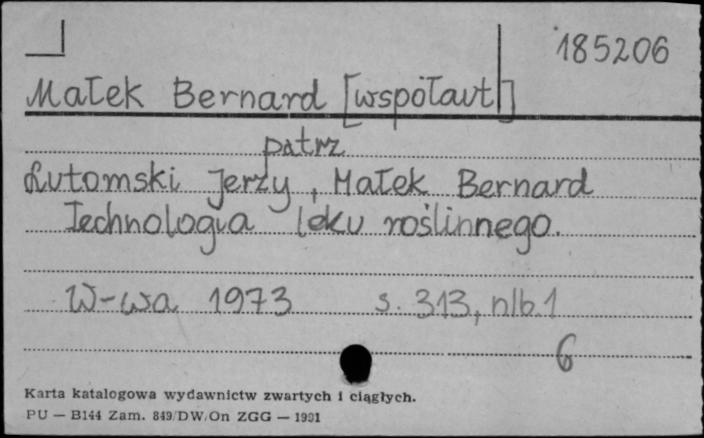 185206
Małek Bernard [współaut]
patrz
Lutomski Jerzy, Małek Bernard
Technologia leku roślinnego.
W-wa 1973 s. 313, nlb. 1
6
Karta katalogowa wydawnictw zwartych i ciągłych.
PU — B144 Zam. 849/DW/On ZGG — 1991